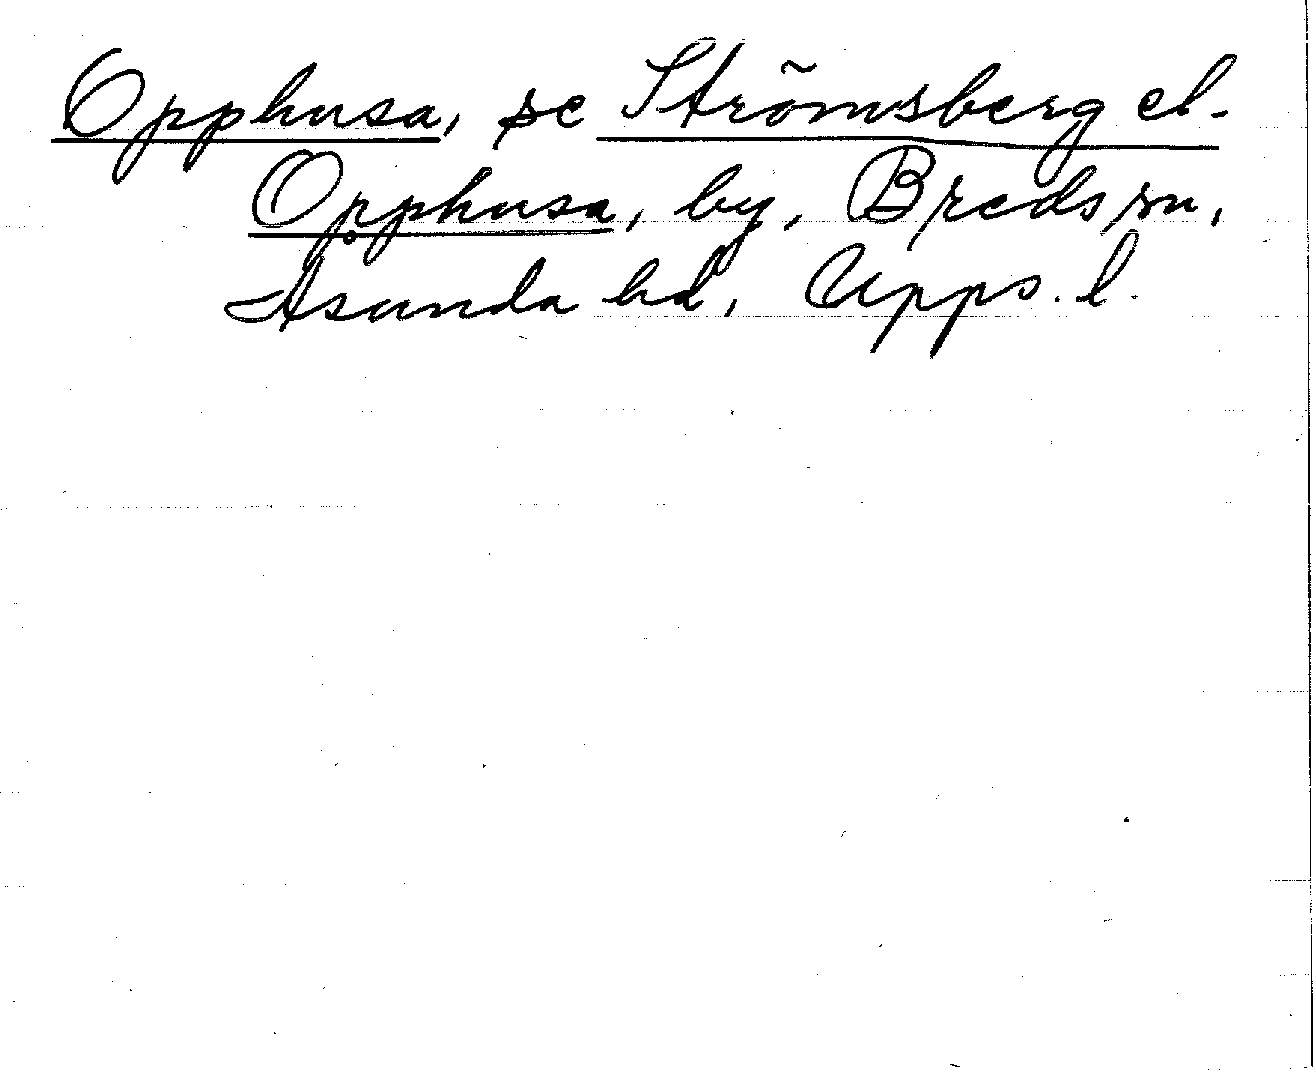 Opphusa, se Strömsberg el.
Opphusa, by, Breds sn,
Åsunda hd, Upps. l.